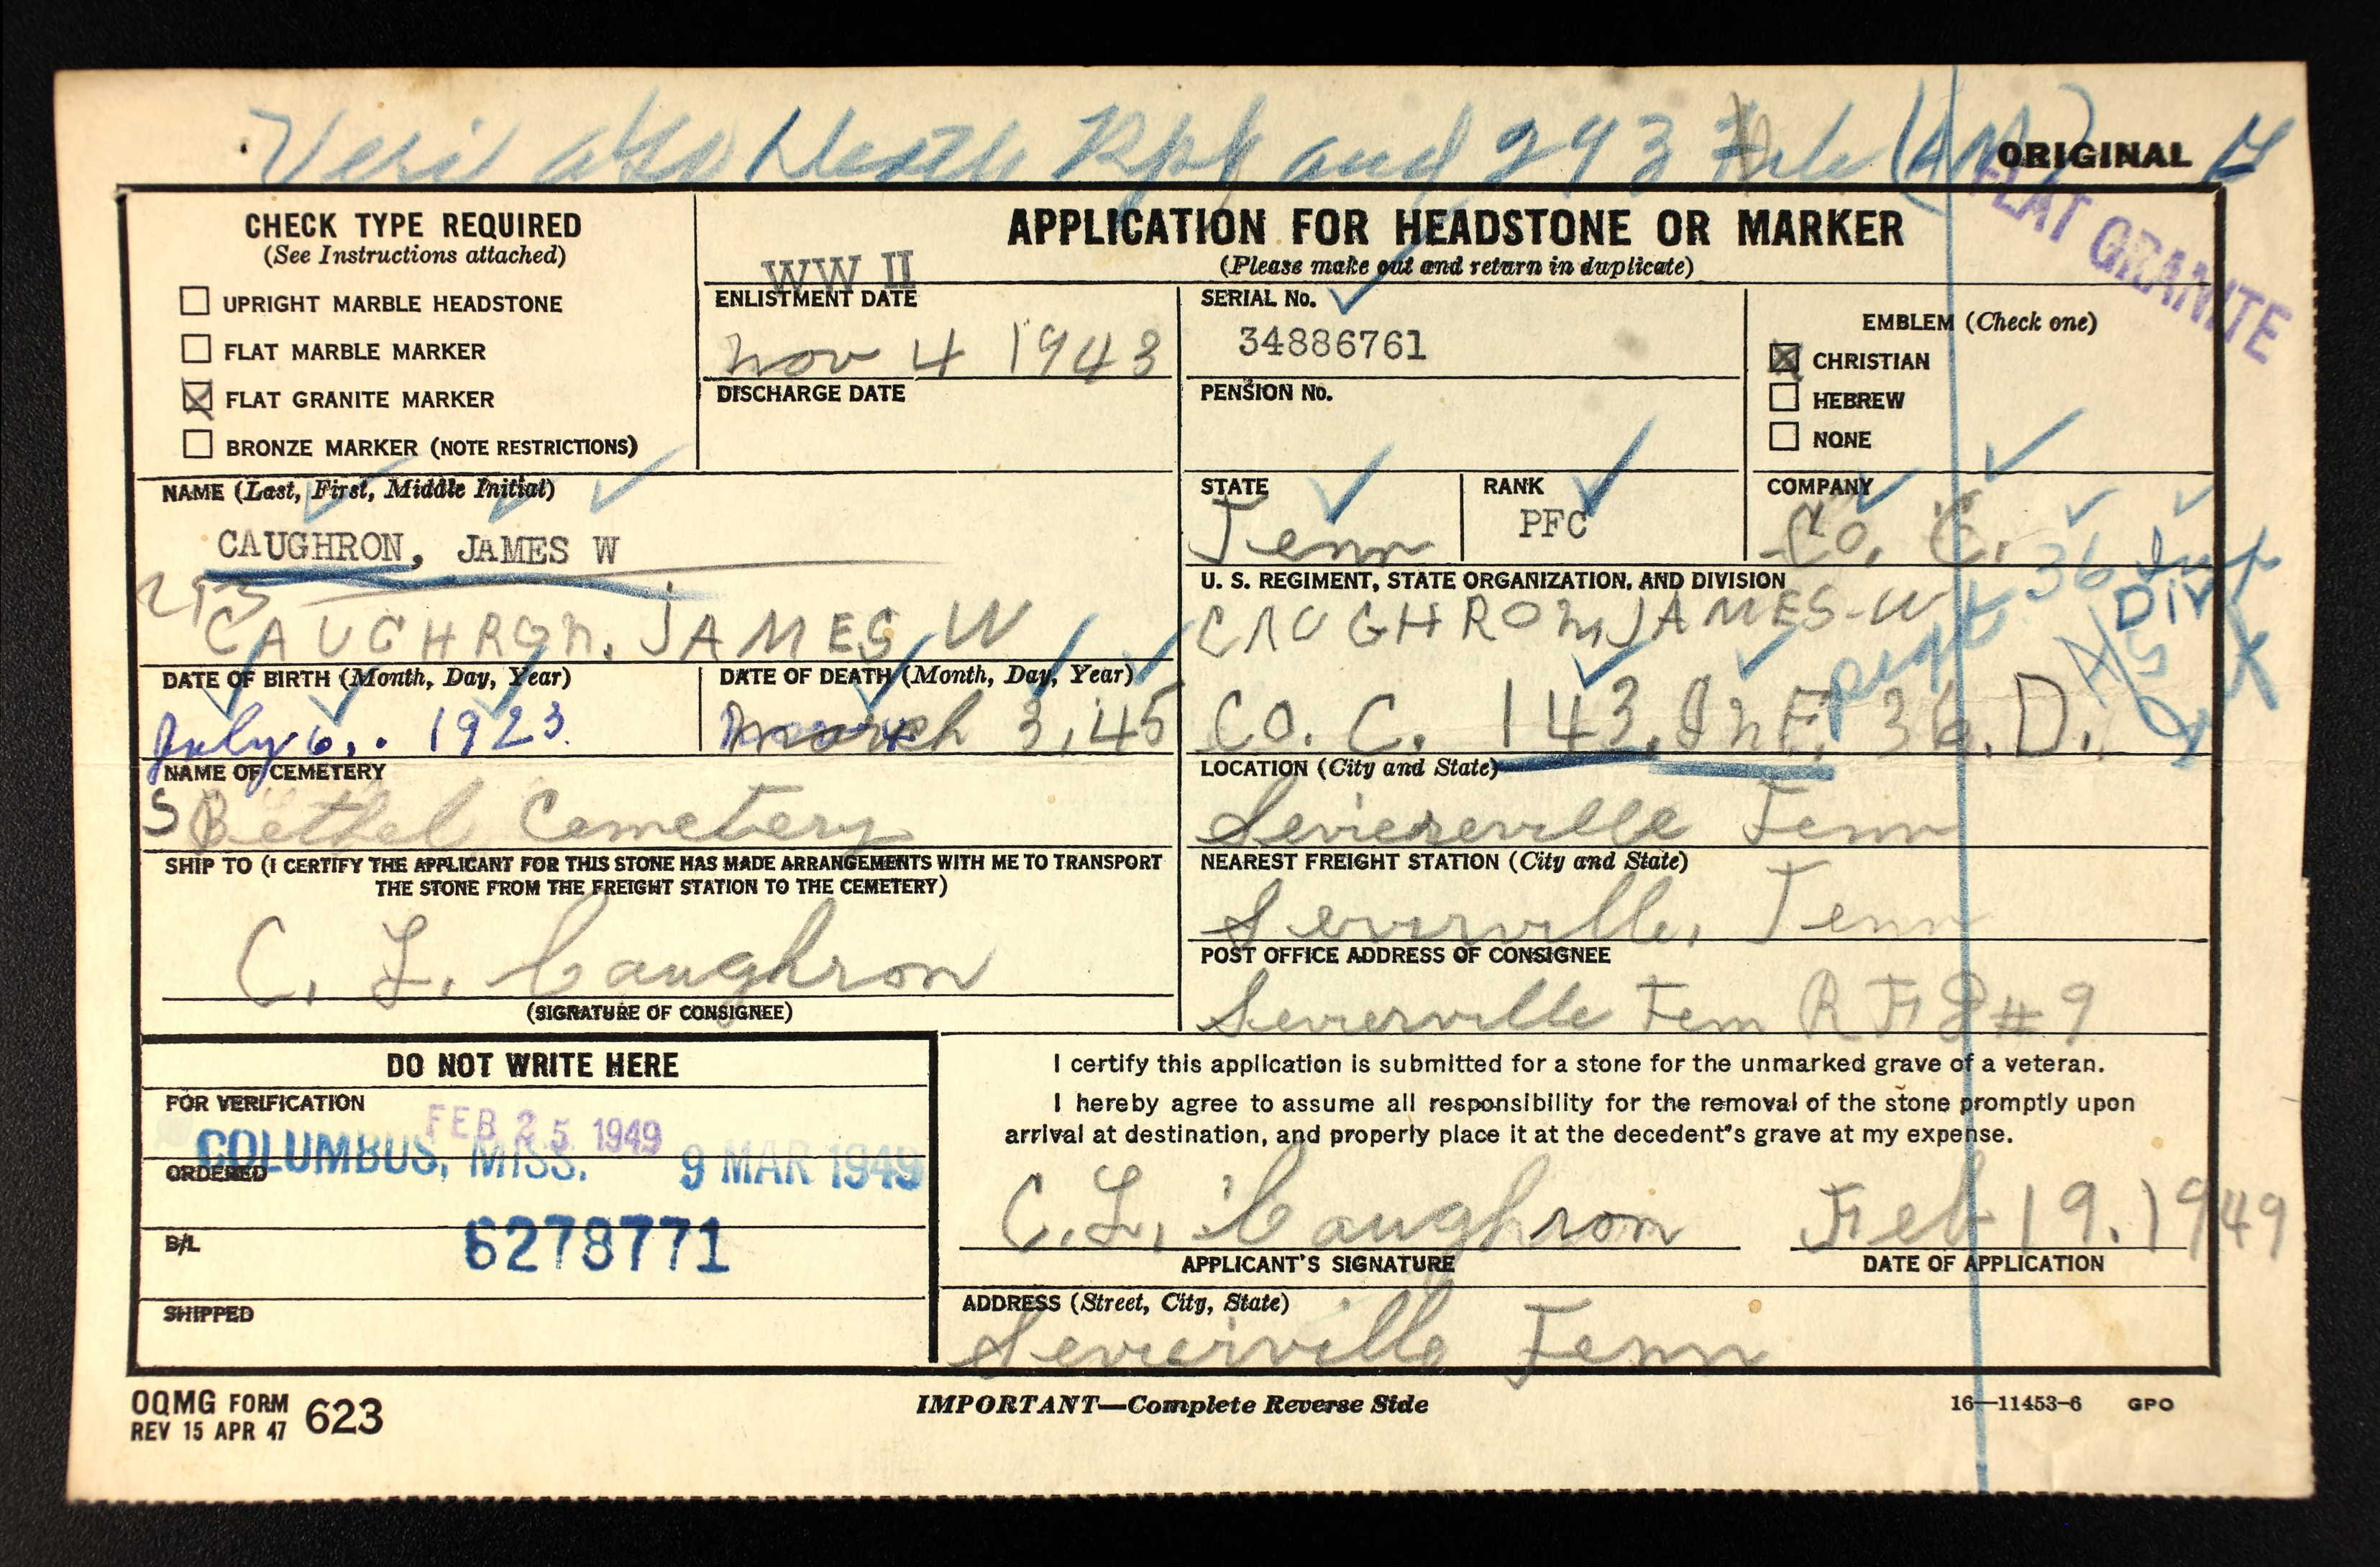 and 293 File
ORIGINAL
FLAT GRANITE
CHECK TYPE REQUIRED
(See Instructions attached)
UPRIGHT MARBLE HEADSTONE
FLAT MARBLE MARKER
FLAT GRANITE MARKER
BRONZE MARKER (NOTE RESTRICTIONS)
APPLICATION FOR HEADSTONE OR MARKER
(Please make out and return in duplicate)
WW II
ENLISTMENT DATE
Nov 4 1943
DISCHARGE DATE
SERIAL No.
34886761
PENSION No.
EMBLEM (Check one)
CHRISTIAN
HEBREW
NONE
NAME (Last, First, Middle Initial)
CAUGHRON, JAMES W
CAUGHRON. JAMES W
STATE
Tenn
RANK
PFC
COMPANY
Co. C.
36 Inf
Div
U. S. REGIMENT, STATE ORGANIZATION, AND DIVISION
CAUGHRON, JAMES-W
Co. C. 143. InF. 36. D.
DATE OF BIRTH (Month, Day, Year)
July 6, . 1923
DATE OF DEATH (Month, Day, Year)
March 3, 45
NAME OF CEMETERY
S Bethel Cemetery
LOCATION (City and State)
Seviereville Tenn
SHIP TO (I CERTIFY THE APPLICANT FOR THIS STONE HAS MADE ARRANGEMENTS WITH ME TO TRANSPORT
THE STONE FROM THE FREIGHT STATION TO THE CEMETERY)
C. L. Caughron
(SIGNATURE OF CONSIGNEE)
NEAREST FREIGHT STATION (City and State)
Sevierville, Tenn
POST OFFICE ADDRESS OF CONSIGNEE
Sevierville Tenn R F D # 9
DO NOT WRITE HERE
FOR VERIFICATION
FEB 25 1949
COLUMBUS, MISS. 9 MAR 1949
ORDERED
B/L
6278771
SHIPPED
I certify this application is submitted for a stone for the unmarked grave of a veteran.
I hereby agree to assume all responsibility for the removal of the stone promptly upon
arrival at destination, and properly place it at the decedent's grave at my expense.
C. L. Caughron
APPLICANT'S SIGNATURE
Feb 19. 1949
DATE OF APPLICATION
ADDRESS (Street, City, State)
Sevierville Tenn
OQMG FORM 623
REV 15 APR 47
IMPORTANT—Complete Reverse Side
16—11453-6 GPO